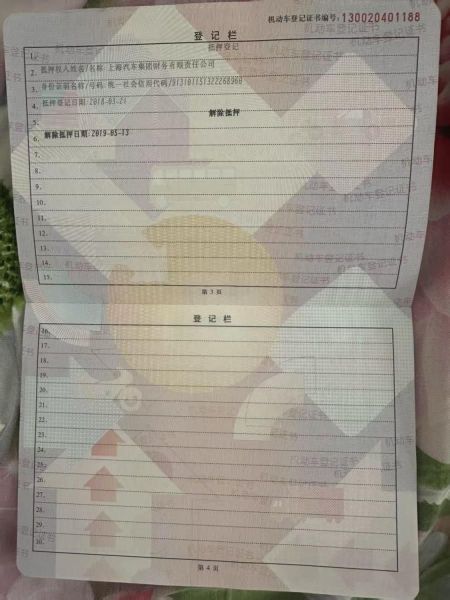 机动车登记证书编号:130020401188
登记栏
1. 抵押登记
2. 抵押权人姓名/名称:上海汽车集团财务有限责任公司
3. 身份证明名称/号码:统一社会信用代码/
4. 抵押登记日期:2018-03-21
5. 解除抵押
6. 解除抵押日期:2019-05-13
7.
8.
9.
10.
11.
12.
13.
14.
15.
第3页
登记栏
16.
17.
18.
19.
20.
21.
22.
23.
24.
25.
26.
27.
28.
29.
30.
第4页